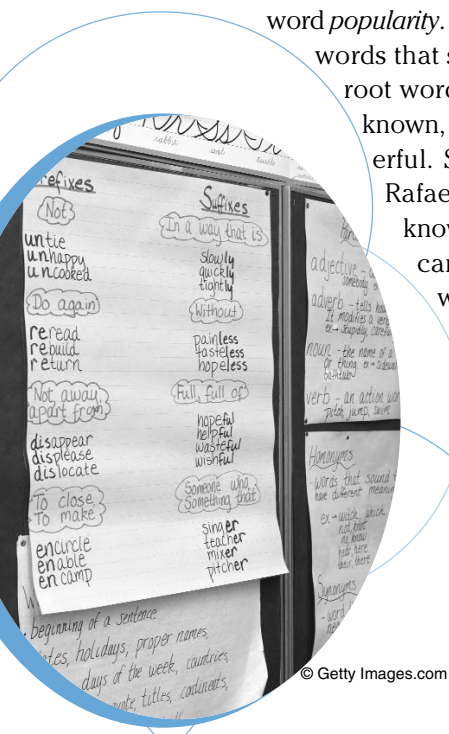 word popularity.
words that s
root word
known,
erful. S
Rafae
know
car
w
refixes
Not
untie
unhappy
uncooked
Do again
reread
rebuild
return
Not away,
apart from
disappear
displease
dislocate
To close,
To make
encircle
enable
encamp
Suffixes
In a way that is
slowly
quickly
tightly
Without
painless
tasteless
hopeless
Full, full of
hopeful
helpful
wasteful
wishful
Someone who,
Something that
singer
teacher
mixer
pitcher
adjective
adverb - tells
It modifies a verb
noun - the name of a
or thing
bathtub
verb - an action wor
pitch, jump, swim
Homonyms
words that sound
have different meanin
ex → witch, which
not, knot
no, know
hear, here
their, there
Synonyms
beginning of a sentence
ates, holidays, proper names,
days of the week, countries,
quote, titles, continents,
© Getty Images.com